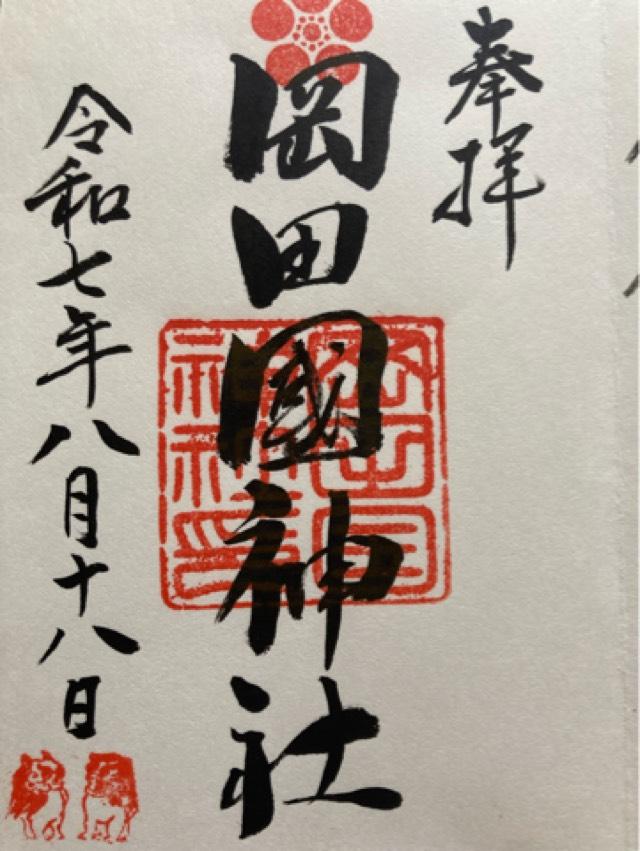 奉拝
岡田國神社
令和七年八月十八日